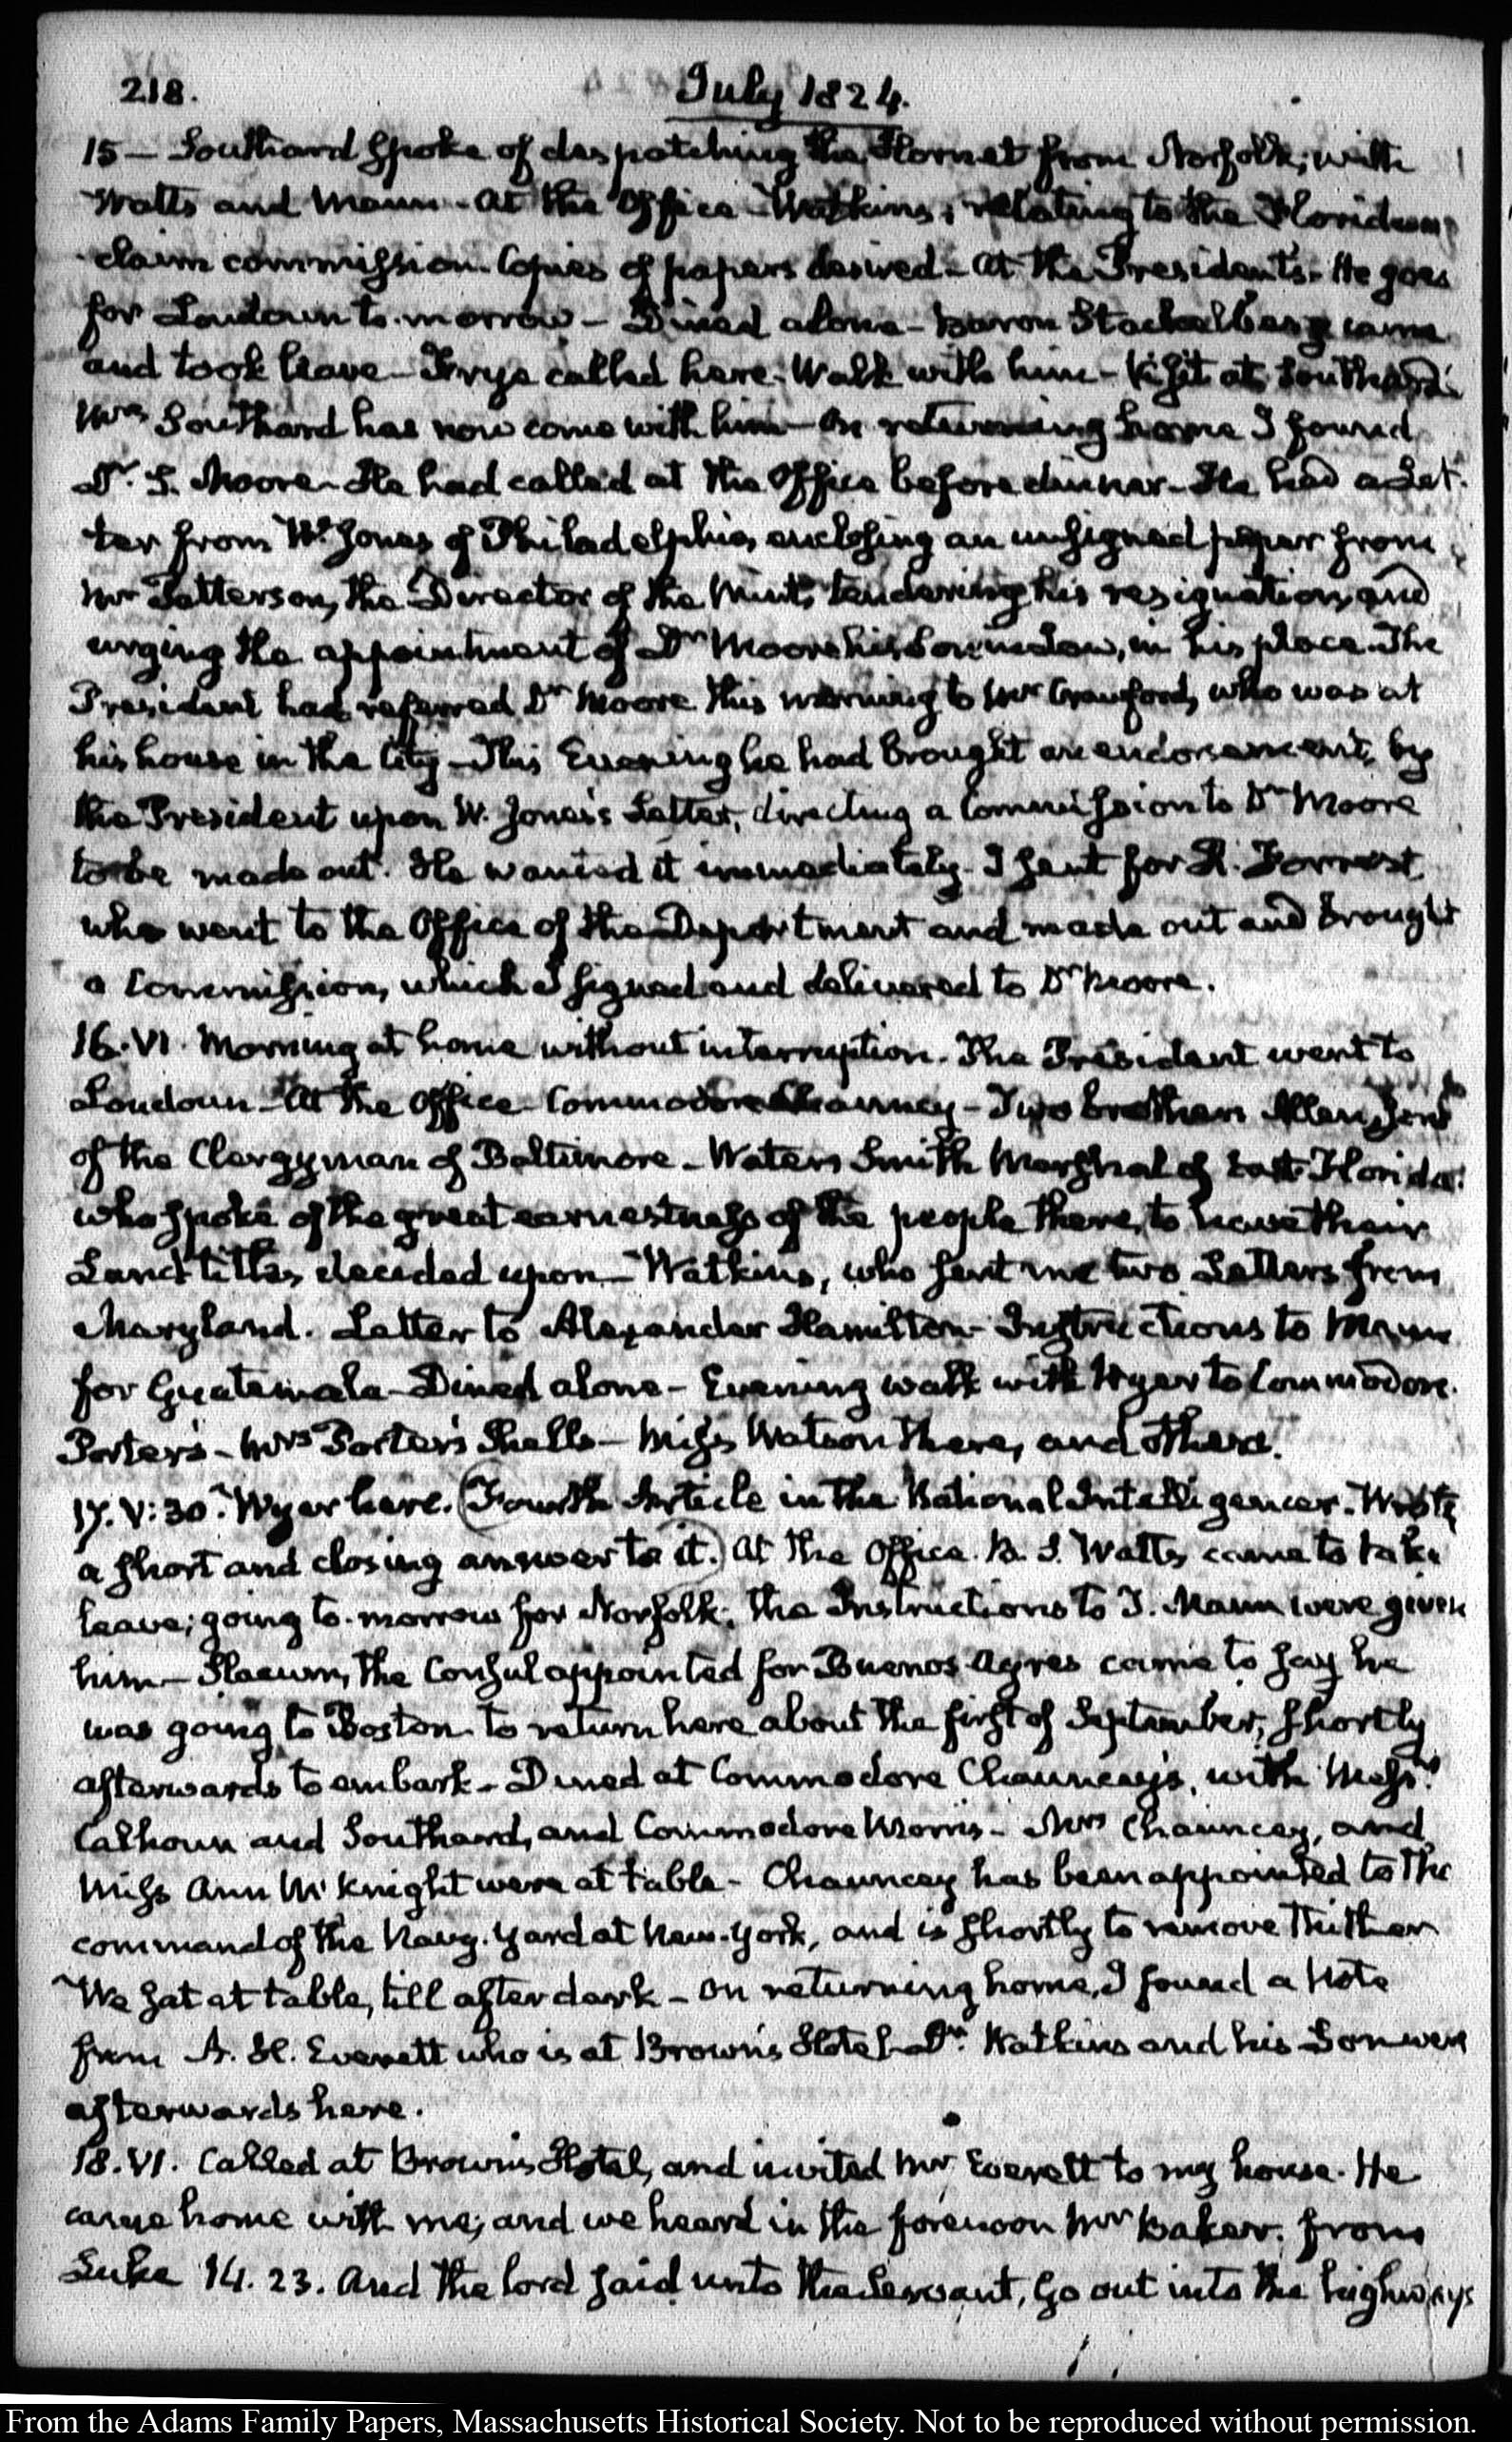 218.
July 1824.
15 — Southard spoke of despatching the Hornet from Norfolk; with
Watts and Mann - At the Office - Watkins; relating to the Floridian
claim commission. Copies of papers desired - At the President's. He goes
for Loudoun to-morrow - Dined alone - Baron Stackelberg came
and took leave - Frye called here. Walk with him - Visit at Southard's
Mrs Southard has now come with him - On returning home I found
Dr. S. Moore - He had called at the Office before dinner - He had a Let-
ter from W. Jones of Philadelphia, enclosing an unsigned paper from
Mr Patterson, the Director of the Mint, tendering his resignation, and
urging the appointment of Dr Moore his Son in Law, in his place. The
President had referred Dr Moore this morning to Mr Crawford, who was at
his house in the City - This Evening he had brought an endorsement, by
the President upon W. Jones's Letter, directing a Commission to Dr Moore
to be made out. He wanted it immediately. I sent for R. Forrest
who went to the Office of the Department and made out and brought
a Commission, which I signed and delivered to Dr Moore.
16. VI. Morning at home without interruption. The President went to
Loudoun - At the Office - Commodore Chauncey - Two brothers Allen, Sons
of the Clergyman of Baltimore - Waters Smith Marshal of East Florida.
who spoke of the great earnestness of the people there, to have their
Land titles decided upon - Watkins, who sent me two Letters from
Maryland. Letter to Alexander Hamilton - Instructions to Mann
for Guatemala - Dined alone - Evening walk with Wyer to Commodore.
Porter's - Mrs Porter's Shells - Miss Watson there, and others.
17. V:30. Wyer here. (Fourth Article in the National Intelligencer. Wrote
a short and closing answer to it.) At the Office. B. S. Watts came to take
leave; going to-morrow for Norfolk. The Instructions to T. Mann were given
him - Slacum, the Consul appointed for Buenos-Ayres came to say he
was going to Boston to return here about the first of September, shortly
afterwards to embark - Dined at Commodore Chauncey's, with Messrs
Calhoun and Southard, and Commodore Morris - Mrs Chauncey, and
Miss Ann McKnight were at table - Chauncey has been appointed to the
command of the Navy-Yard at New-York, and is shortly to remove thither
We sat at table, till after dark - On returning home, I found a Note
from A. H. Everett who is at Brown's Hotel - Dr. Watkins and his Son were
afterwards here.
18. VI. Called at Brown's Hotel, and invited Mr Everett to my house. He
came home with me; and we heard in the forenoon Mr Baker. from
Luke 14. 23. And the lord said unto the Servant, Go out into the highways
From the Adams Family Papers, Massachusetts Historical Society. Not to be reproduced without permission.